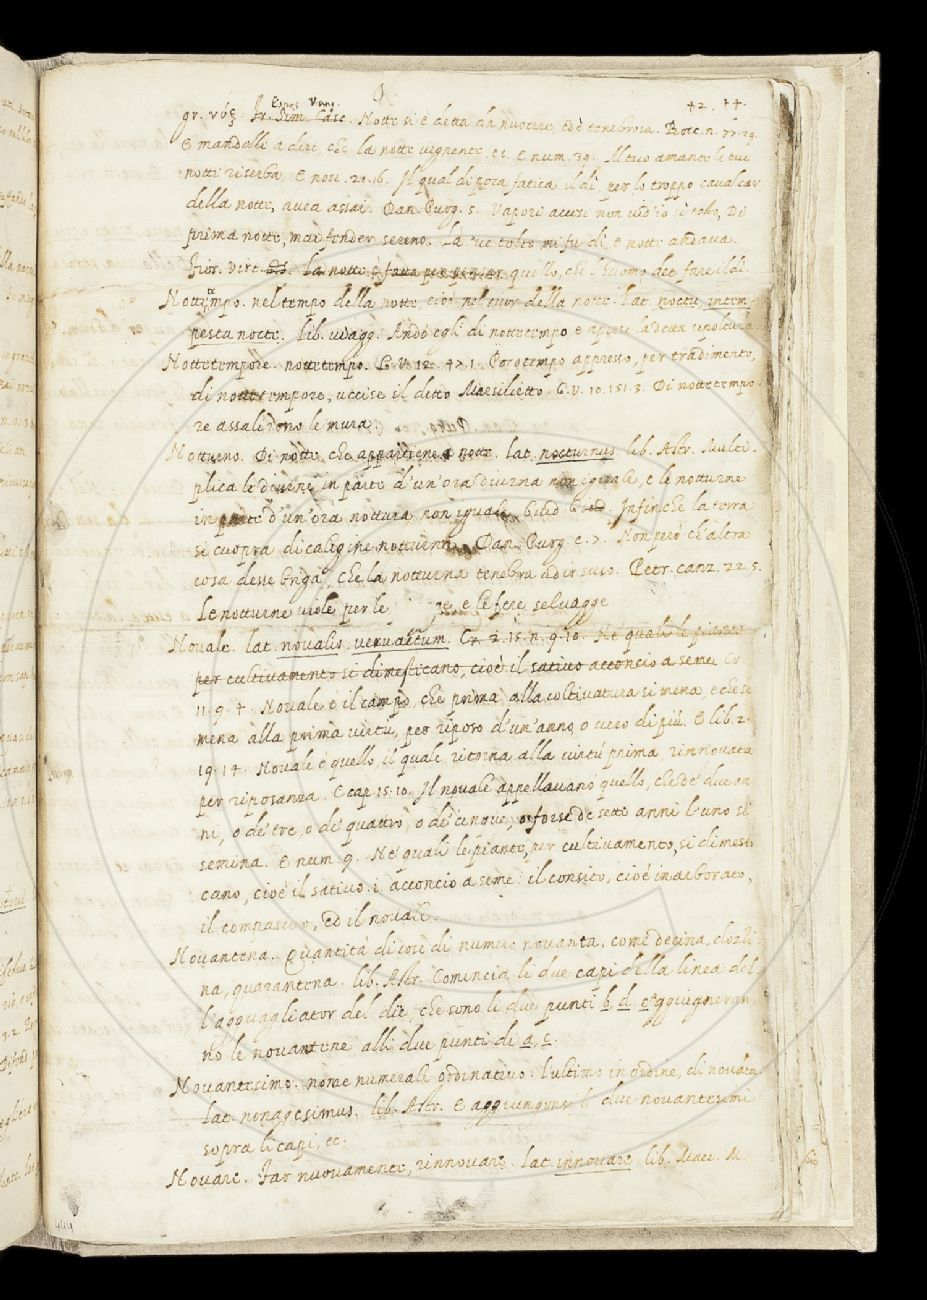 42. 74.
gr. νύξ. Fr. Sim. Casc. Notte si è detta da nuocere, ed è tenebrosa. Bocc. n. 77. 29.
E mandolle a dire, che la notte vegnente. ec. E num. 39. Al tuo amante le tue
notti riserba. E nou. 21. 16. Il qual di poca fatica il dì, per lo troppo caualcar
della notte, auea assai. Dan. Purg. 5. Vapori accesi non vid'io sì tosto, Di
prima notte, mai fender sereno. La 've tolto mi fu dì, e notte andaua.
Fior. Virt. La notte è fatta per pensar quello, che l'huomo dee fare il dì.
Nottetempo. nel tempo della notte, cioè nel della notte. lat. noctu, intem-
pesta nocte. lib. viagg. Andò egli di nottetempo e aperse la detta sepoltura.
Nottetempore. nottetempo. G. V. 12. Poco tempo appresso, per tradimento,
di nottetempore, uccise il detto Marsilietto. G. V. 10. 151. 3. Di nottetempo-
re assalirono le mura.
Notturno. Di notte, che appartiene a notte. lat. nocturnus. lib. Astr. Multi-
plica le diurne in parte d'un'ora diurna non iguale, e le notturne
in parte d'un'ora nottura non iguale. Infinche la terra
si cuopra di caligine notturna. Dan. Purg. c. 7. Non però ch'altra
cosa desse briga, che la notturna tenebra ad ir suso. Petr. canz. 22. 5.
Le notturne viole per le ge, e le fere seluagge
Nouale. lat. novalis, veruactum. Cr. 2. 15. n. 9. 10. Ne' quali le piante
per cultiuamento si dimesticano, cioè il satiuo acconcio a seme. Cr.
11. 9. 4. Nouale è il campo, che prima alla coltiuatura si mena, e che si
mena alla prima virtù, per riposo d'un'anno, o uero di più. E lib. 2.
19. 14. Nouale è quello, il quale ritorna alla virtù prima, rinnouata
per riposanza. E cap. 15. 10. Il nouale appellauano quello, che de' due an
ni, o de' tre, o de' quattro, o de' cinque, o forse de' sette anni l'uno si
semina. E num. 9. Ne' quali le piante, per cultiuamento, si dimesti
cano, cioè il satiuo. i. acconcio a seme: il consito, cioè inarborato,
il compascuo, ed il nouale.
Nouantena. Quantità di cose di numero nouanta, come decina, dozzi-
na, quarantena. lib. Astr. Comincia li due capi della linea del-
l'agguagliator del die, che sono li due punti b. d. e aggiugneran
no le nouantene alli due punti di a, c.
Nouantesimo. nome numerale ordinatiuo: l'ultimo in ordine, di nouāta.
lat. nonagesimus. lib. Astr. E aggiungons. li due nouantesimi
sopra li capi, ec.
Nouare. Far nuouamente, rinnouare. lat. innouare. lib. Macc. M.
444